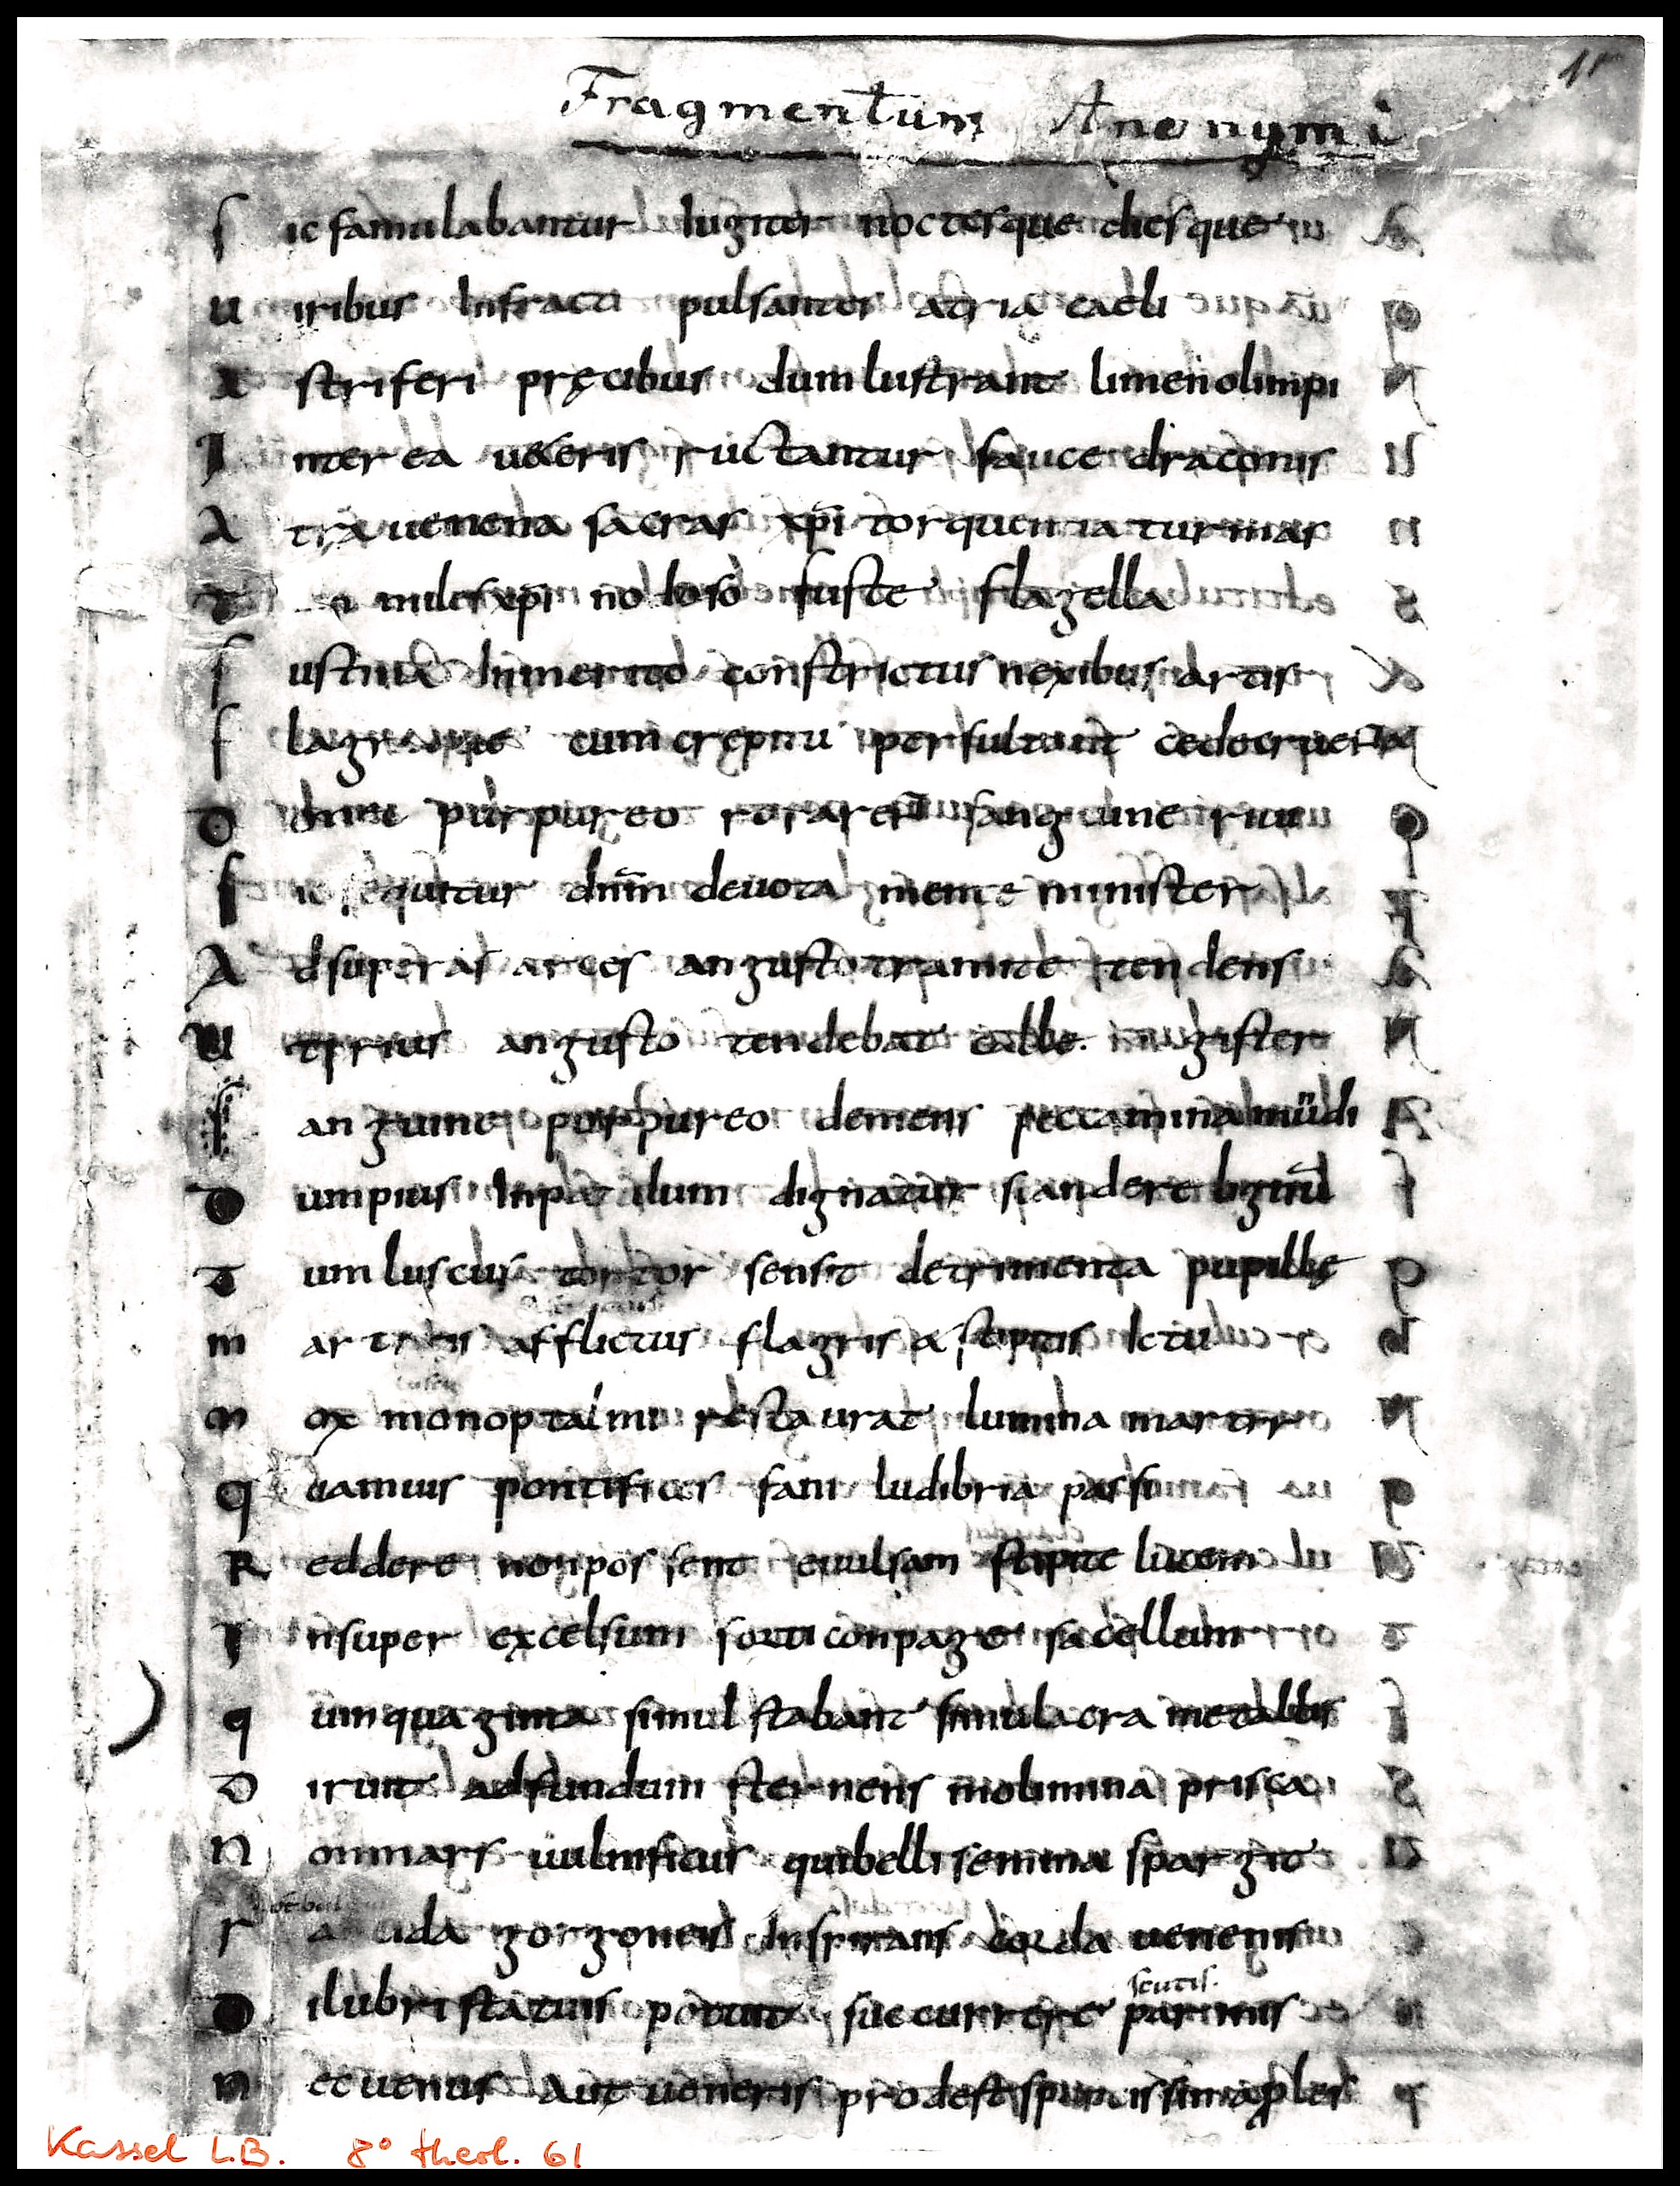 1r
Fragmentum Anonymi
s ic famulabantur lugiter noctesque diesque
u iribus Infracti pulsantes atria caeli
A striferi pręcibus dum lustrant limen olimpi
I nterea ueteris ructantur fauce draconis
A tra uenena sacras xp̄i torquentia turmas
miles xp̄i fuste flagella
s ustinuit Inmerito constrictus nexibus artis
f lagraque cum crępitu persultant
D purpureo roraret sanguine riuu
s ic sequitur dn̄m deuota mente minister
A dsuperas arces angusto tramite tendens
U t prius angusto tendebat calle magister
s anguine porpureo demens peccamina mūdi
D um pius Inpatulum dignatur scandere lignū
T um luscus tortor sensit detrimenta pupillę
m artiris afflictus flagris & stipitis Ictu
m ox monoptalmi restaurat lumina martir
q uamuis pontifices fani ludibria passi
R eddere non possent euulsam stipite lucem
I nsuper excelsum forti conpage sacellum
q uinquaginta simul stabant simulacra metallis
D iruit adfundum sternens molimina prisca
N on mars uulnificus qui belli semina spargit
r a cida gorgoneis Inspirans corda uenenis
scutis.
D ilubri statuis potuit succurrere parmis
n ec uenus aut ueneris prodest spurcissima p̱les
Kassel L.B. 8° theol. 61